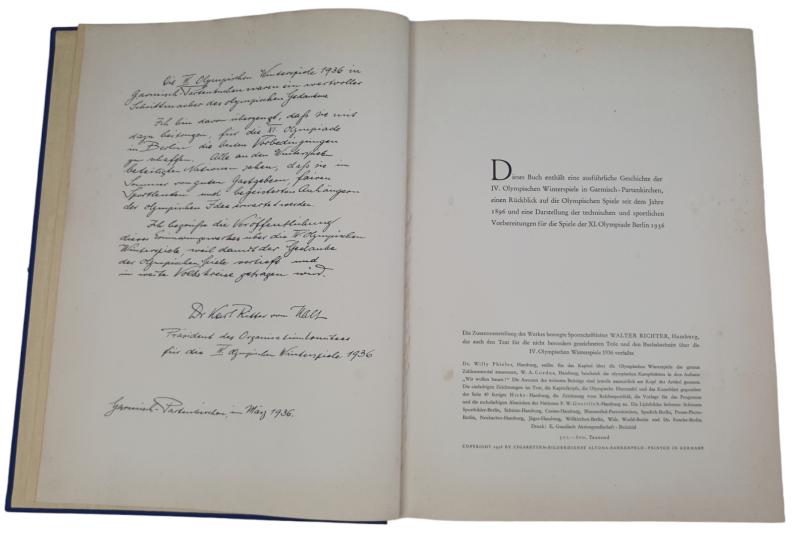 Die IV. Olympischen Winterspiele 1936 in
Garmisch-Partenkirchen waren ein wertvoller
Schrittmacher des olympischen Gedankens
Ich bin davon überzeugt, daß sie mit
dazu beitragen, für die XI. Olympiade
in Berlin die besten Vorbedingungen
zu schaffen. Alle an den Winterspielen
beteiligten Nationen sahen, daß sie im
Sommer von guten Gastgebern, fairen
Sportleuten und begeisterten Anhängern
der olympischen Idee erwartet werden.
Ich begrüße die Veröffentlichung
dieses Erinnerungswerkes über die IV. Olympischen
Winterspiele, weil damit der Gedanke
der Olympischen Spiele vertieft und
in weite Volkskreise getragen wird.
Dr. Karl Ritter von Halt
Präsident des Organisationskomitees
für die IV. Olympischen Winterspiele 1936
Garmisch-Partenkirchen, im März 1936.
Dieses Buch enthält eine ausführliche Geschichte der
IV. Olympischen Winterspiele in Garmisch-Partenkirchen,
einen Rückblick auf die Olympischen Spiele seit dem Jahre
1896 und eine Darstellung der technischen und sportlichen
Vorbereitungen für die Spiele der XI. Olympiade Berlin 1936
Die Zusammenstellung des Werkes besorgte Sportschriftleiter WALTER RICHTER, Hamburg,
der auch den Text für die nicht besonders gezeichneten Teile und den Buchabschnitt über die
IV. Olympischen Winterspiele 1936 verfaßte
Dr. Willy Hamburg, stellte für das Kapitel über die Olympischen Winterspiele das genaue
Zahlenmaterial zusammen, W. A. Cordua, Hamburg, beschrieb die olympischen Kampfstätten in dem Aufsatz
„Wir wollen bauen!“ Die Autoren der weiteren Beiträge sind jeweils namentlich am Kopf der Artikel genannt.
Die einfarbigen Zeichnungen im Text, die Kapitelköpfe, die Olympische Ehrentafel und das Kunstblatt gegenüber
der Seite 40 fertigte Hamburg, die Zeichnung vom Reichssportfeld, die Vorlage für das Programm
und die mehrfarbigen Abzeichen der Nationen F. W. Hamburg an. Die Lichtbilder lieferten: Schirner
Sportbilder-Berlin, Schirner-Hamburg,
Berlin, Hamburg, Jäger-Hamburg, Berlin, Wide World-Berlin und Berlin.
Druck: E. Gundlach Aktiengesellschaft - Bielefeld
Tausend
COPYRIGHT 1936 BY CIGARETTEN-BILDERDIENST ALTONA-BAHRENFELD - PRINTED IN GERMANY